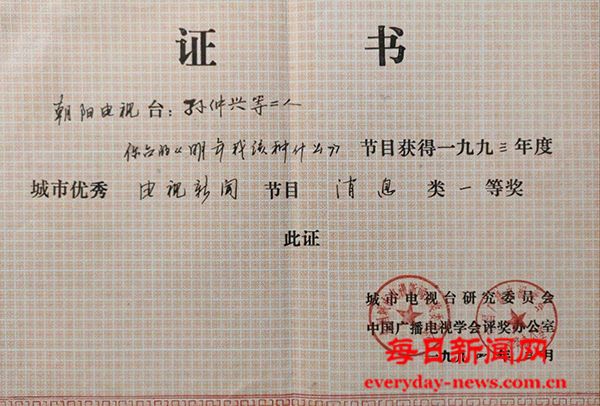 证书
朝阳电视台：孙仲兴等二人
你台的《明年我该种什么》节目获得一九九三年度
城市优秀电视新闻节目消息类一等奖
此证
城市电视台研究委员会
中国广播电视学会评奖办公室
一九九 年 月
每日新闻网
everyday-news.com.cn